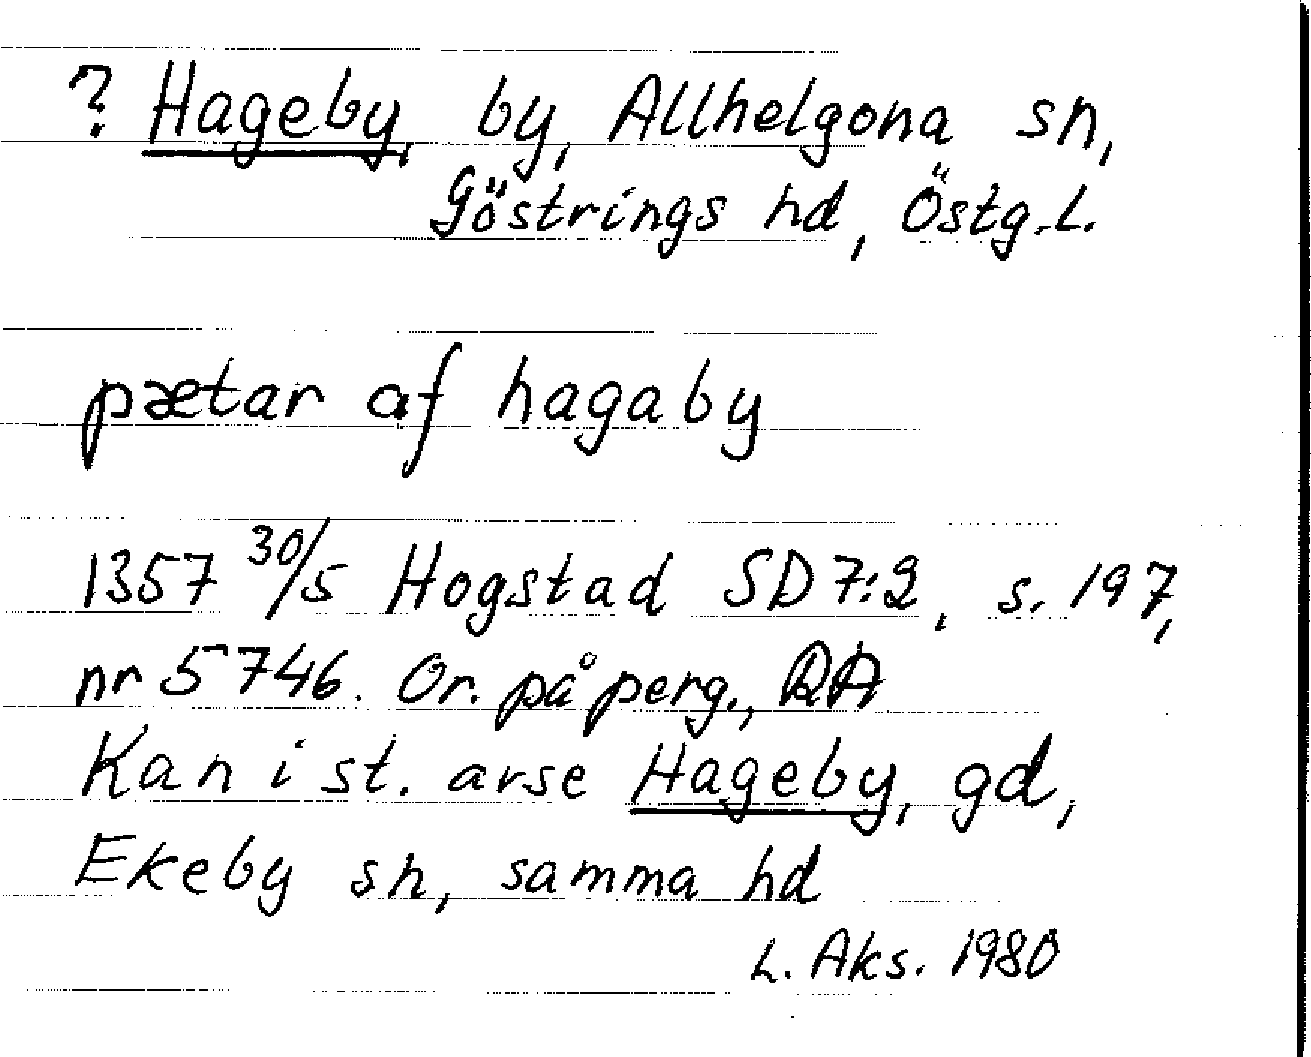 ? Hageby, by, Allhelgona sn,
Göstrings hd, Östg.L.
pætar af hagaby
1357 30/5 Hogstad SD 7:2, s. 197,
nr 5746. Or. på perg., RA
Kan i st. avse Hageby, gd,
Ekeby sn, samma hd
L. Aks. 1980